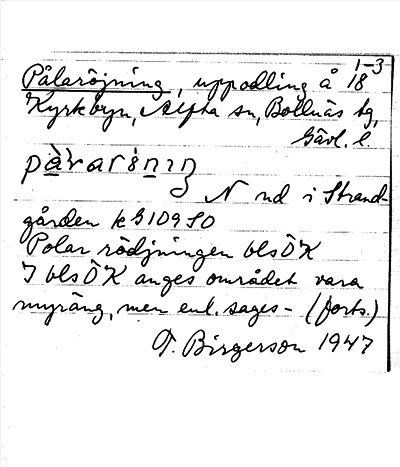 1-3
Pålaröjning, uppodling å 18
Kyrkbyn, Alfta sn, Bollnäs tg,
Gävl. l.
N nd i Strand-
gården k G 109 SO
Polar rödjningen blsÖK
I blsÖK anges området vara
myräng, men enl. sages- (forts.)
T. Birgerson 1947